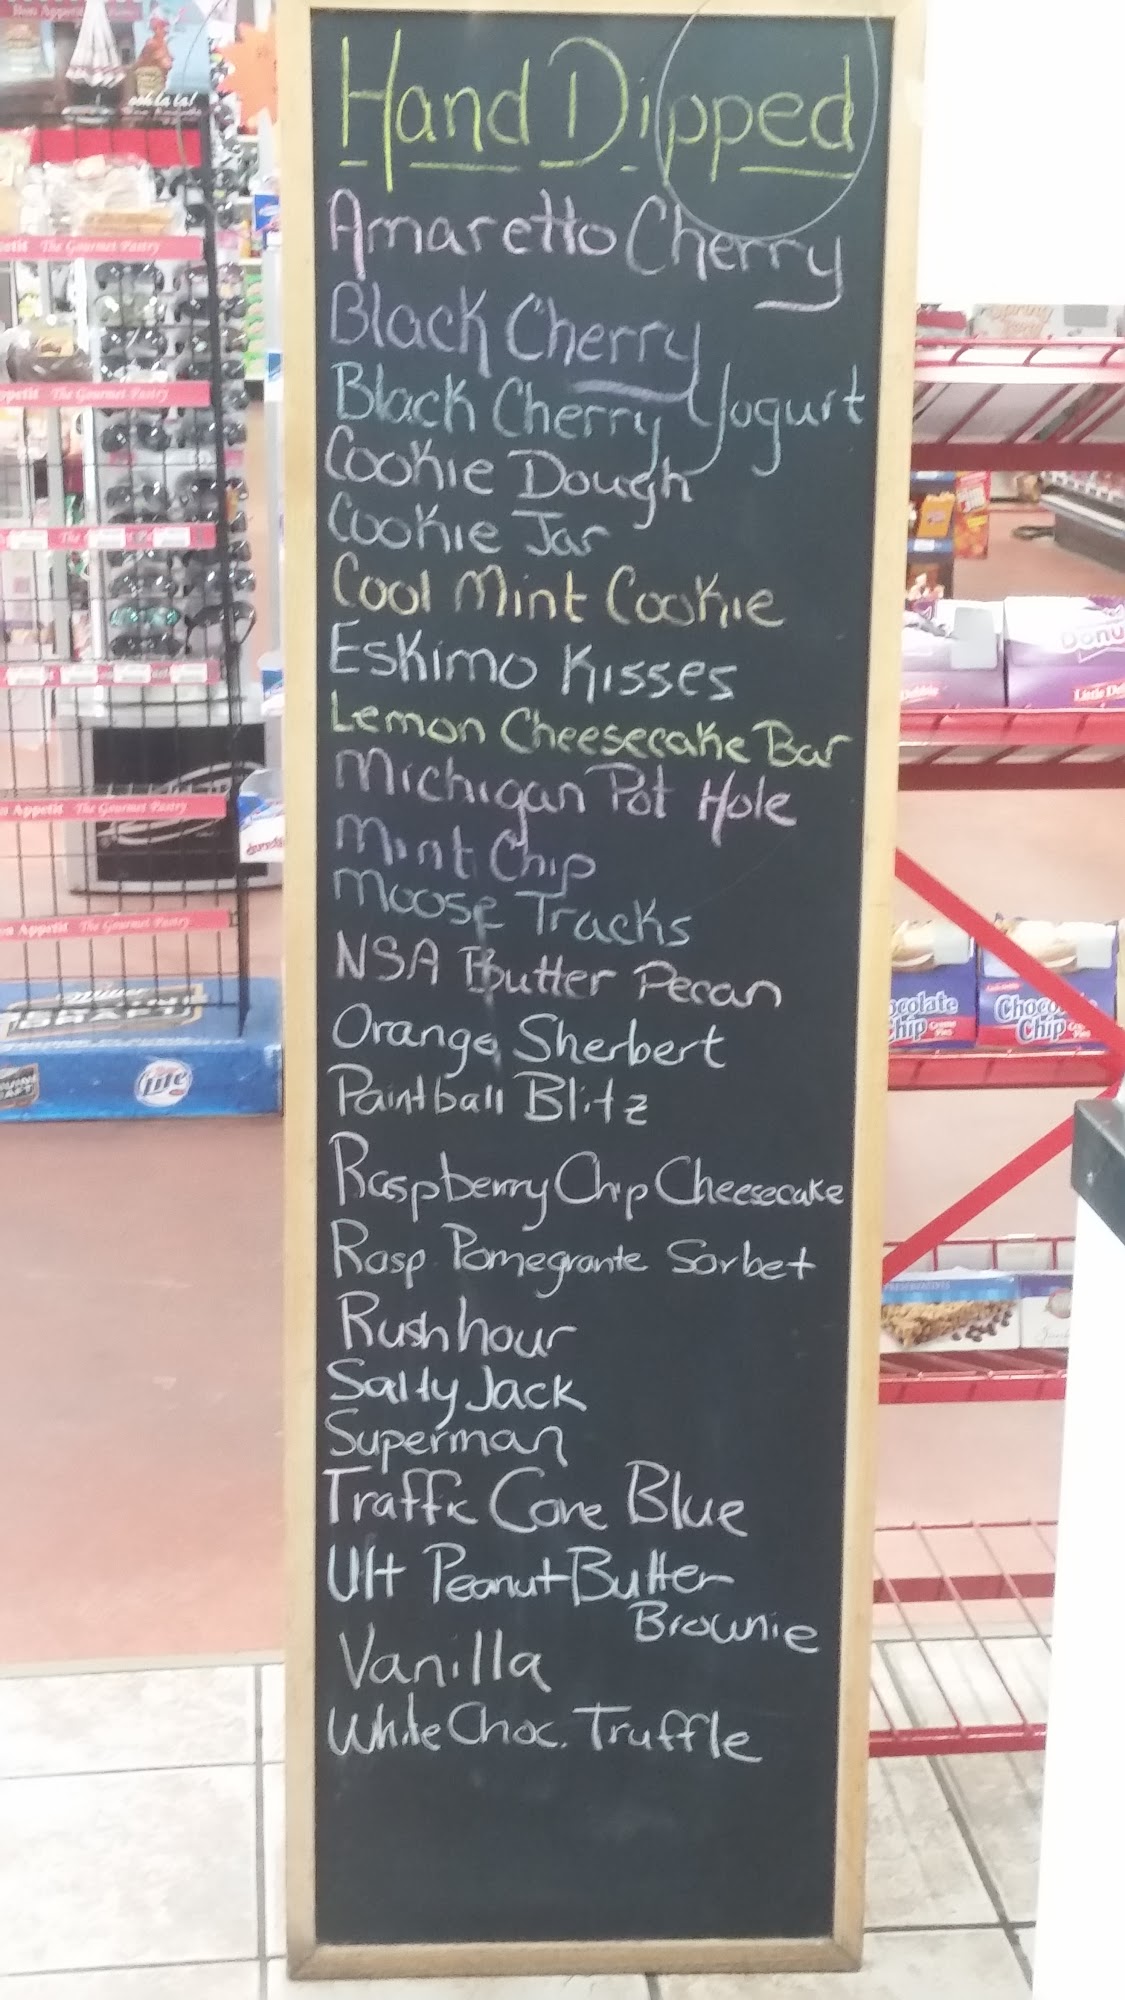 Hand Dipped
Amaretto Cherry
Black Cherry
Black Cherry Yogurt
Cookie Dough
Cookie Jar
Cool Mint Cookie
Eskimo Kisses
Lemon Cheesecake Bar
Michigan Pot Hole
Mint Chip
Moose Tracks
NSA Butter Pecan
Orange Sherbert
Paintball Blitz
Raspberry Chip Cheesecake
Rasp Pomegrante Sorbet
Rush hour
Salty Jack
Superman
Traffic Cone Blue
Ult Peanut Butter
Brownie
Vanilla
White Choc. Truffle
Bon Appetit
ooh la la!
The Gourmet Pastry
The Gourmet Pastry
Appetit The Gourmet Pastry
Appetit The Gourmet Pastry
Miller
Lite
Donu
Little De
Chip
Choco
Chip